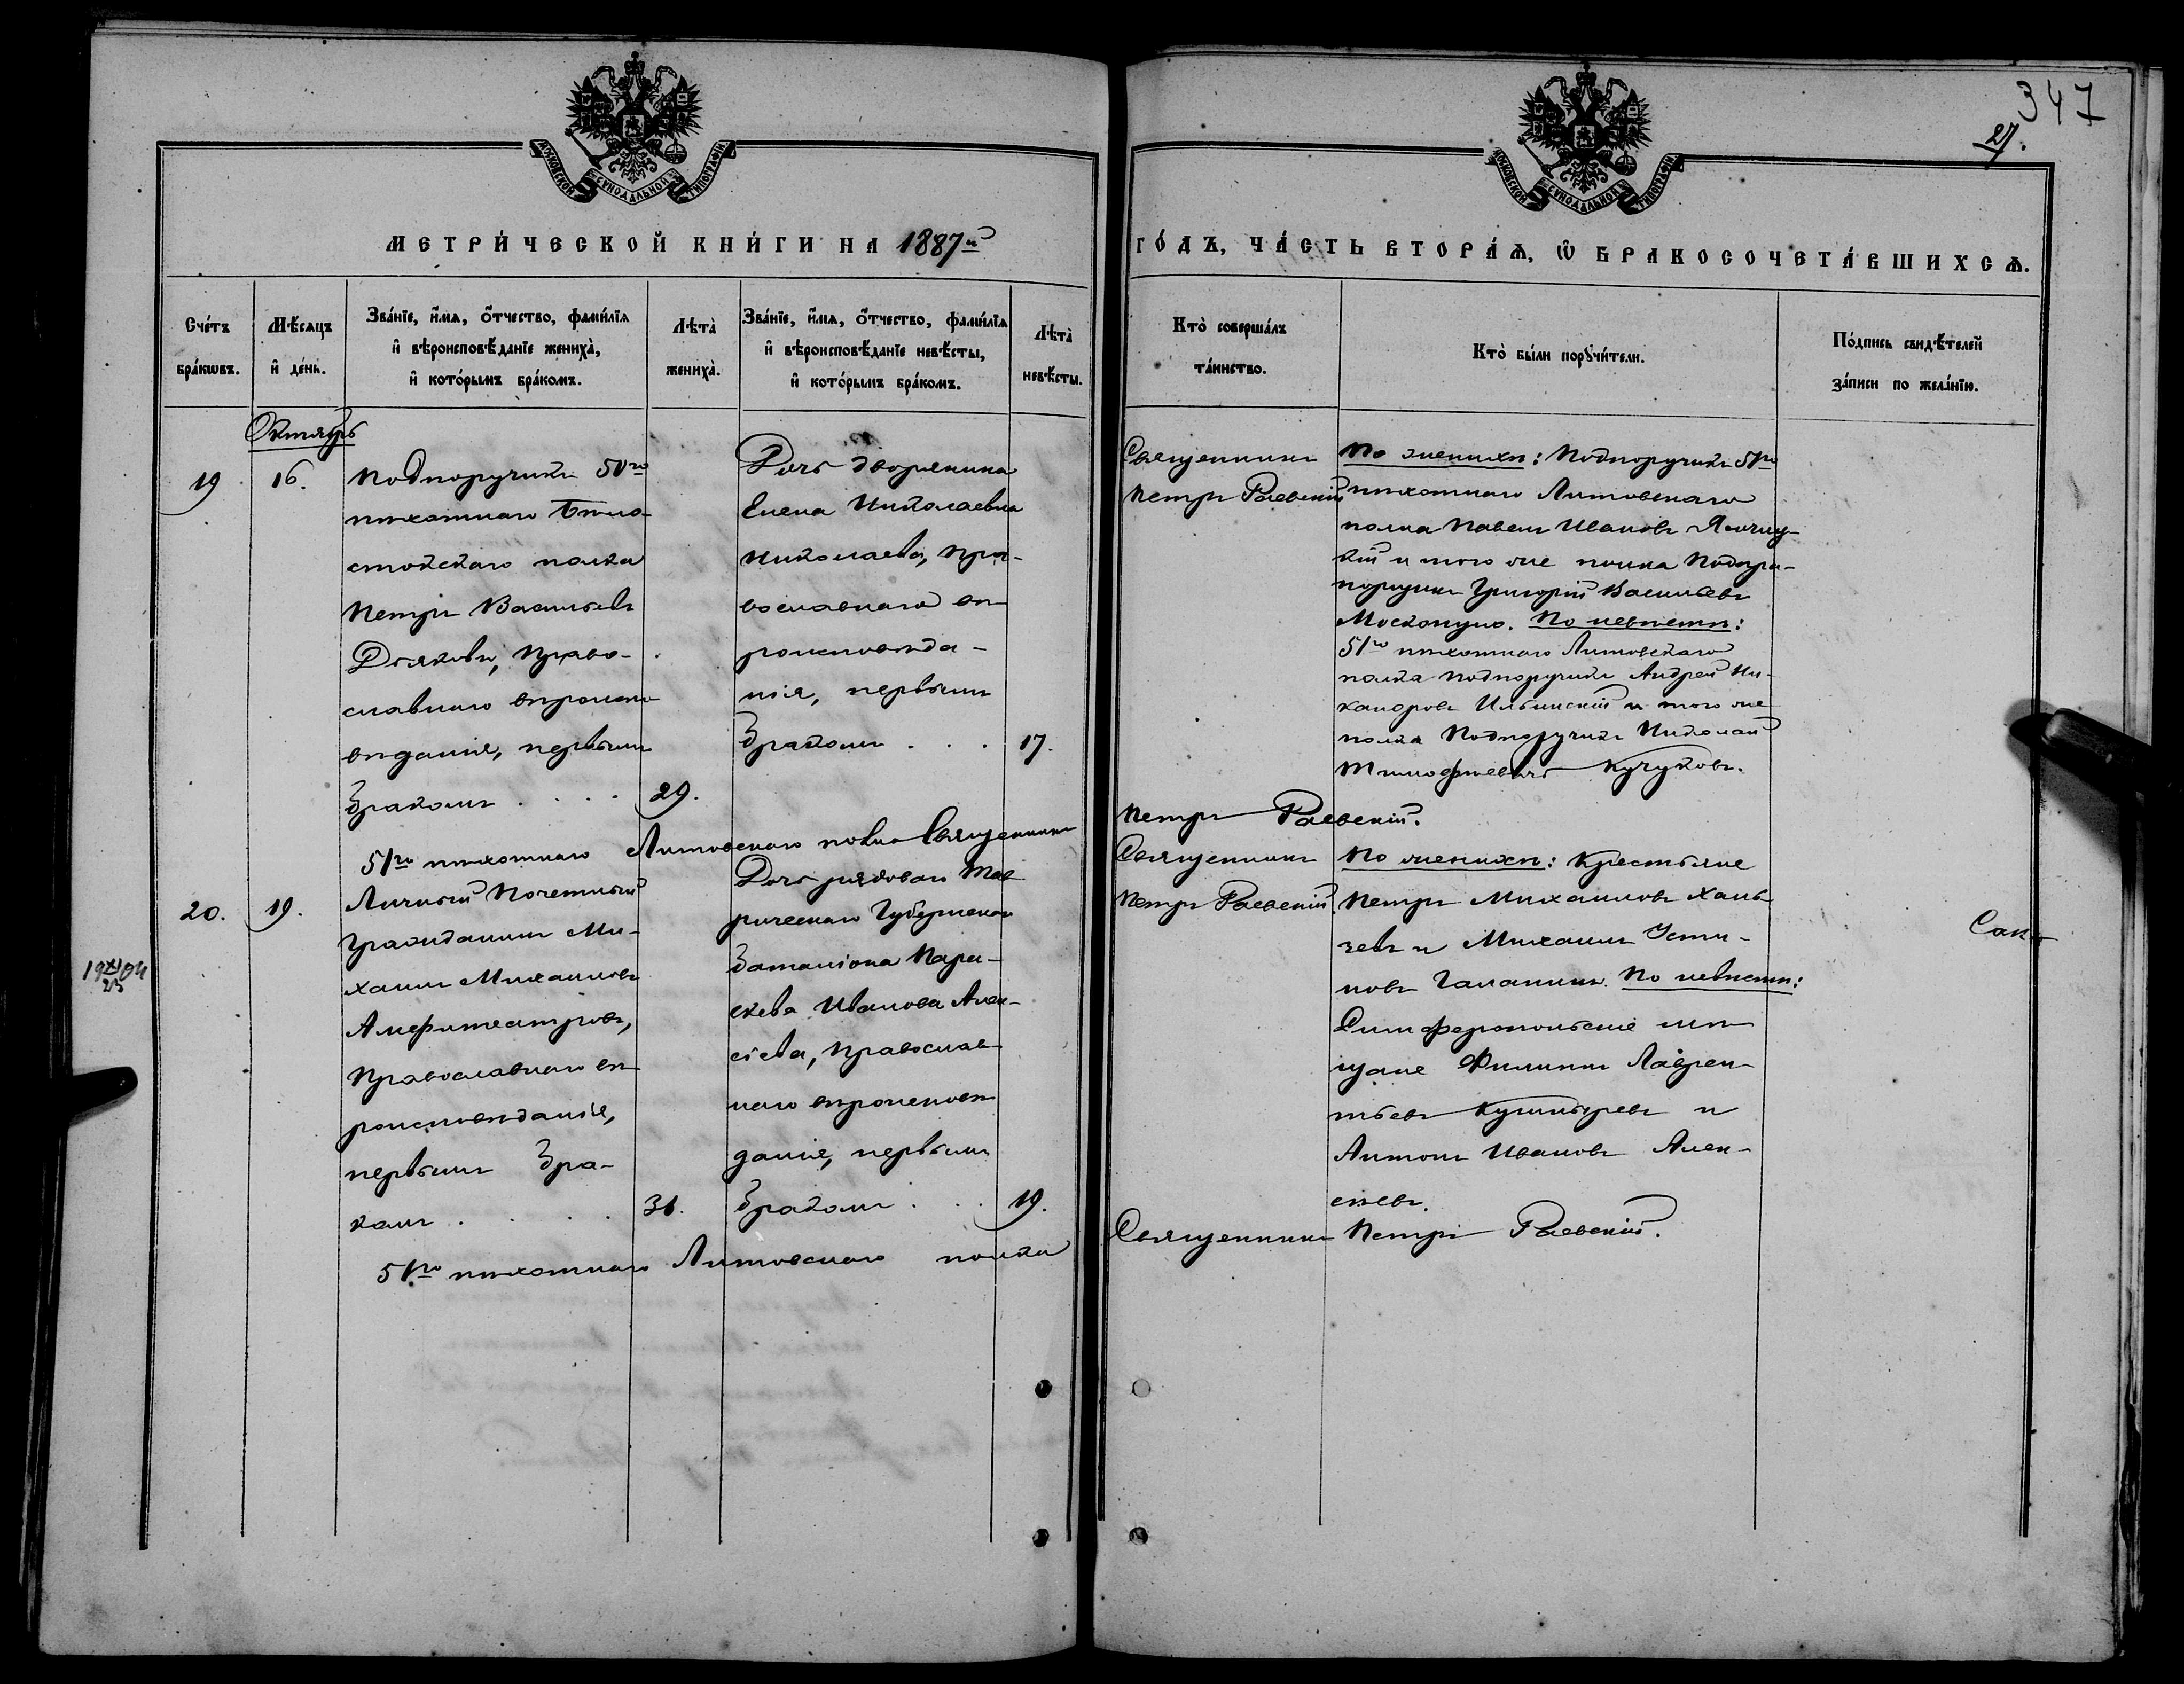 347
27.
МОСКОВСКОЙ СУНОДАЛЬНОЙ ТИПОГРАФІИ
МОСКОВСКОЙ СУНОДАЛЬНОЙ ТИПОГРАФІИ
МЕТРИ́ЧЕСКОЙ КНИ́ГИ НА 1887й
ГО́ДЪ, ЧА́СТЬ ВТОРА́Ѧ, Ѽ БРАКОСОЧЕТА́ВШИХСѦ.
Сче́тъ
бра́кѡвъ.
Мѣ́сяцъ
и҆ де́нь.
Зва́нїе, и҆́мѧ, ѻ҆́тчество, фами́лїѧ
и҆ вѣроисповѣ́данїе жениха̀,
и҆ кото́рымъ бра́комъ.
Лѣта̀
жениха̀.
Зва́нїе, и҆́мѧ, ѻ҆́тчество, фами́лїѧ
и҆ вѣроисповѣ́данїе невѣ́сты,
и҆ кото́рымъ бра́комъ.
Лѣта̀
невѣ́сты.
Кто̀ соверша́лъ
та́инство.
Кто̀ бы́ли порꙋчи́тели.
По́дпись свидѣ́телей
за́писи по жела́нїю.
Октябрь
19
16.
Подпоручикъ 50го
пѣхотнаго Бѣло-
стокскаго полка
Петръ Васильевъ
Дьяковъ, Право-
славнаго вѣроиспо-
вѣданія, первымъ
бракомъ . . . .
29.
Дочь дворянина
Елена Николаевна
Николаева, Пра-
вославнаго вѣ-
роисповѣда-
нія, первымъ
бракомъ . . .
17.
Священникъ
Петръ Раевскій
По женихѣ: Подпоручикъ 51го
пѣхотнаго Литовскаго
полка Павелъ Ивановъ
кій и того же полка Подпра-
порщикъ Григорій Васильевъ
По невѣстѣ:
51го пѣхотнаго Литовскаго
полка подпоручикъ Андрей Ни-
кандровъ Ильинскій и того же
полка Подпоручикъ Николай
Тимофѣевичъ Кучуковъ.
51го пѣхотнаго Литовскаго полка Священникъ
Петръ Раевскій.
20.
19.
19 XI/25 04
Личный Почетный
Гражданинъ Ми-
хаилъ Михаиловъ
Амфитеатровъ,
Православнаго вѣ-
роисповѣданія,
первымъ бра-
комъ . . . .
31.
Дочь рядоваго Тав-
рическаго Губернскаго
баталіона Парас-
кева Иванова Алек-
сіева, Православ-
наго вѣроисповѣ-
данія, первымъ
бракомъ . . .
19.
Священникъ
Петръ Раевскій.
По женихѣ: Крестьяне
Петръ Михаиловъ
и Михаилъ Усти-
новъ Галанинъ. По невѣстѣ:
Симферопольскіе мѣ-
щане Филиппъ Лаврен-
тьевъ Кушныревъ и
Антонъ Ивановъ Алек-
сѣевъ.
51го пѣхотнаго Литовскаго полка
Священникъ Петръ Раевскій.